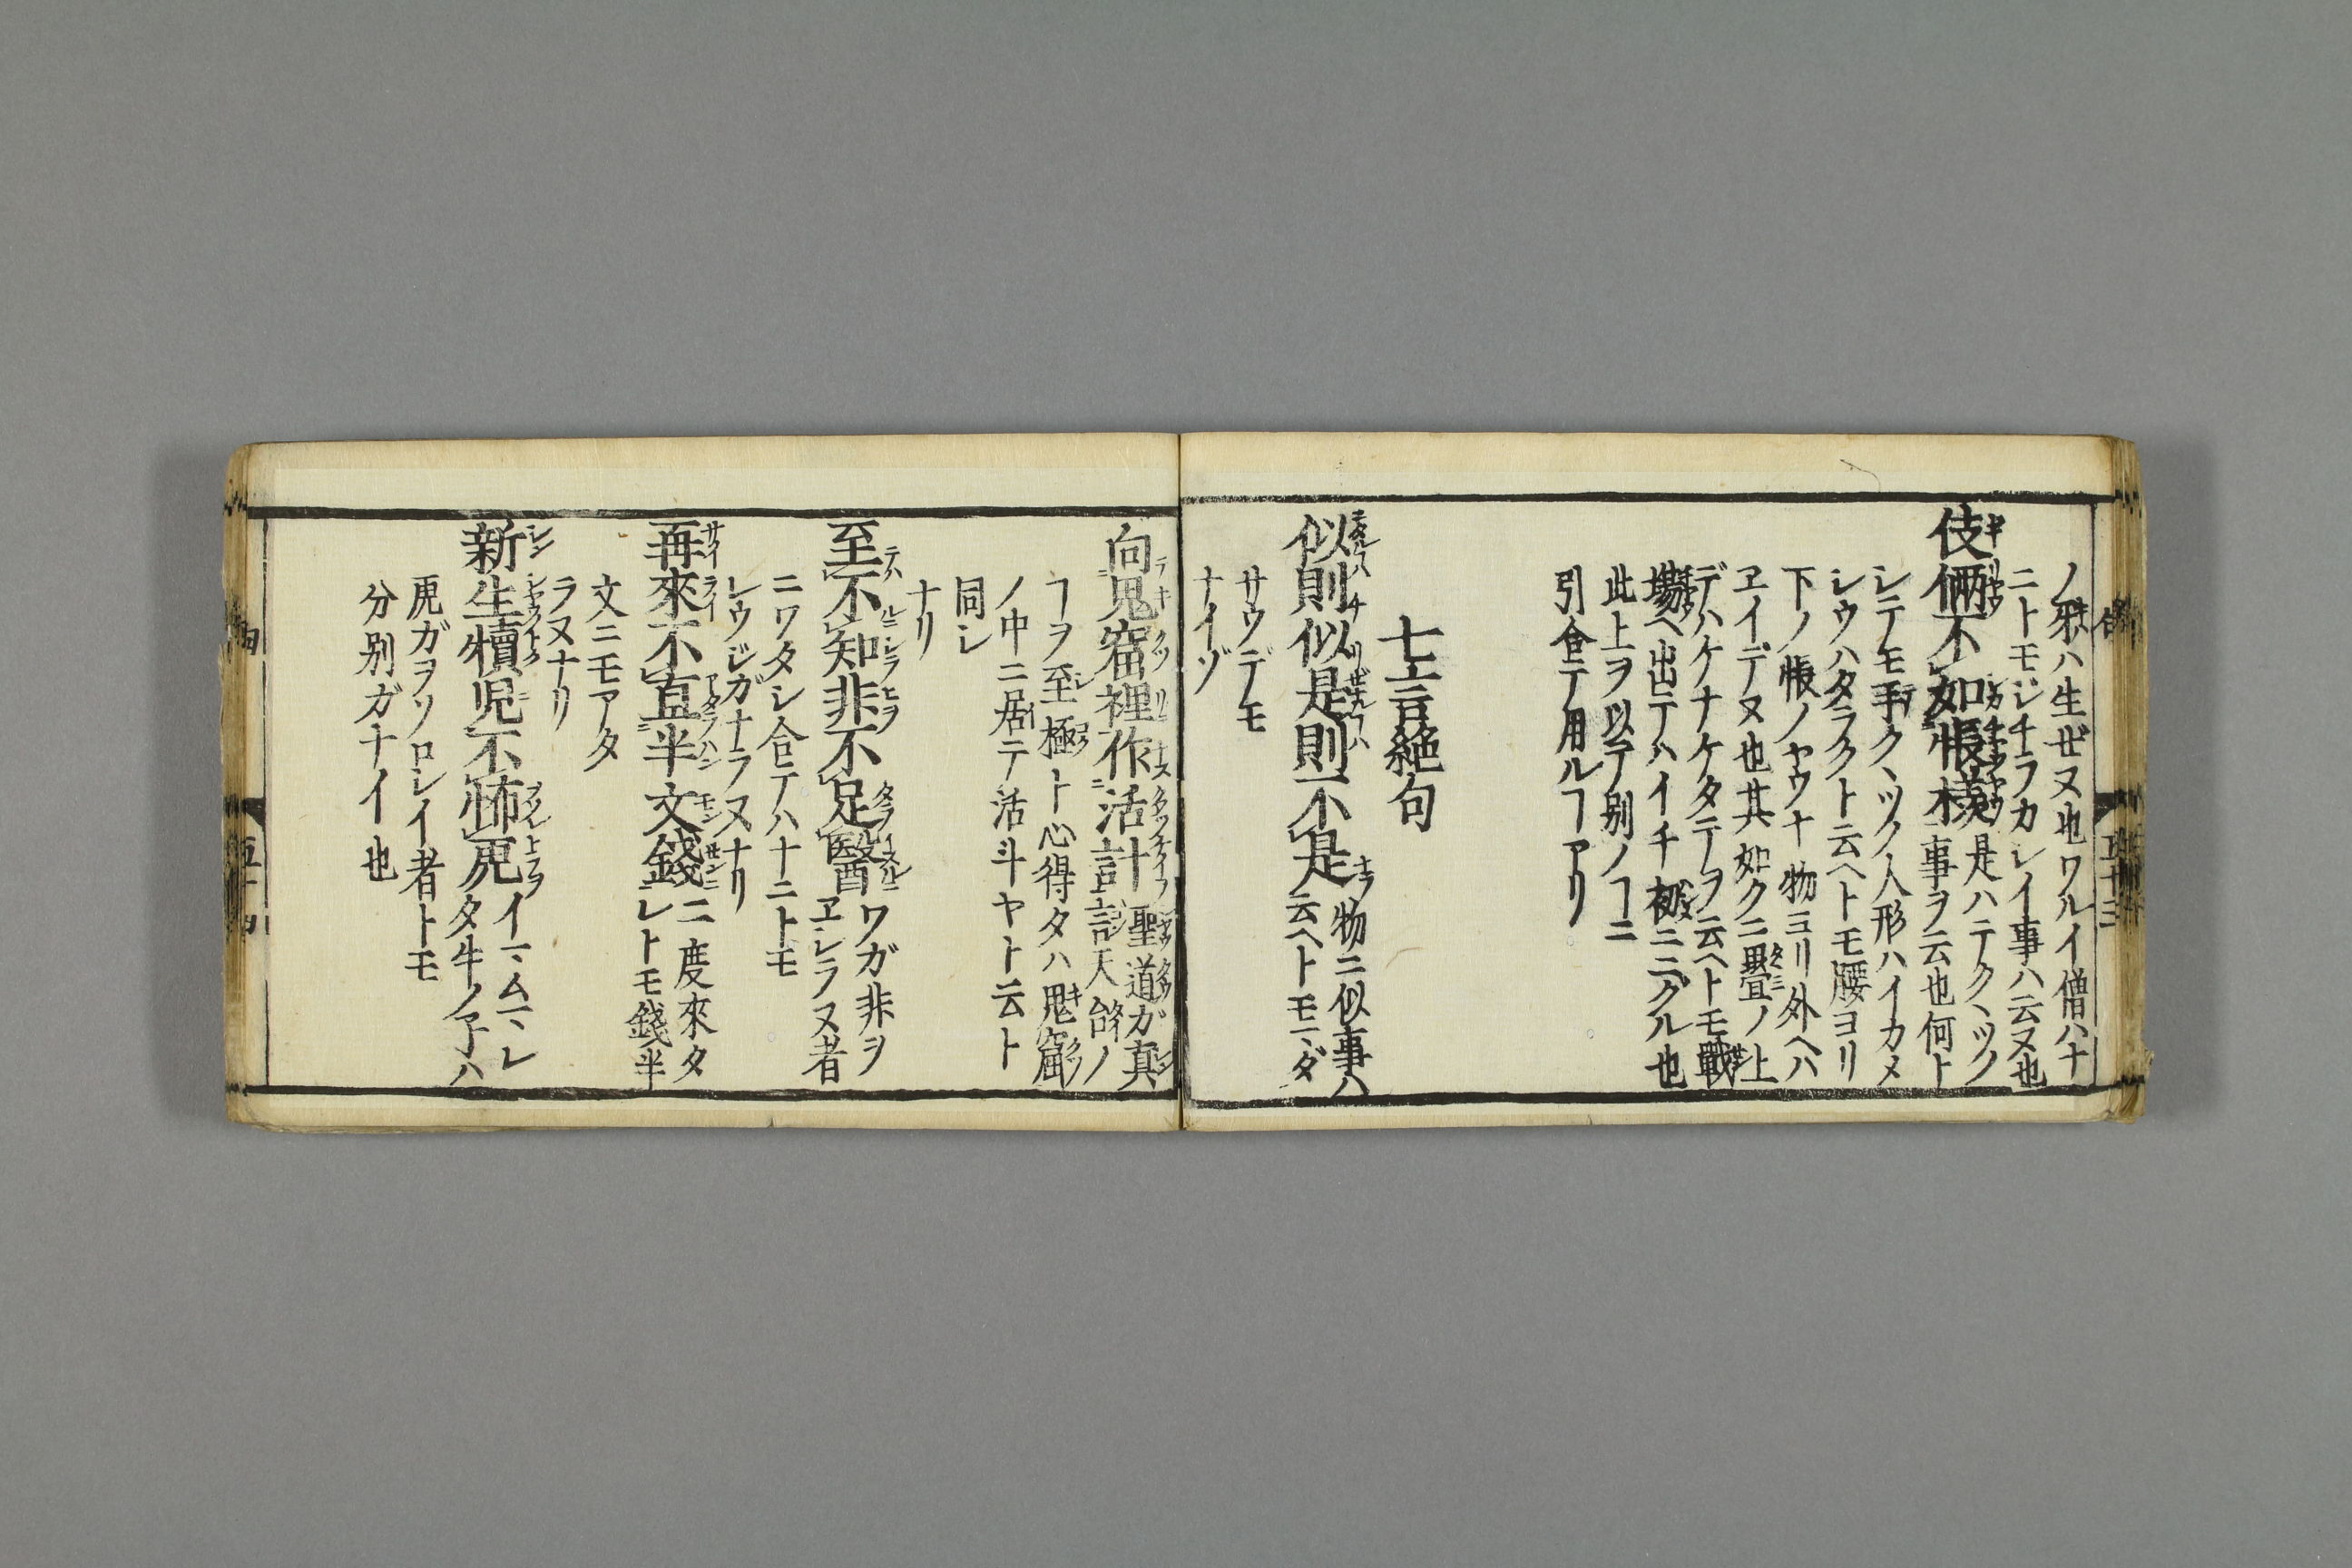 ノ邪ハ生ゼヌ也ワルイ僧ハナ
ニトモジチラカレイ事ハ云ヌ也
伎倆不如帳様是ハテクヽツノ
事ヲ云也何ト
レテモ手クヽツノ人形ハイカメ
レウハタラクト云ヘトモ腰ヨリ
下ノ帳ノヤウナ物ヨリ外ヘハ
ヱイデヌ也其如クニ畳ノ上
デハケナケタテヲ云ヘトモ戰
場ヘ出テハイチ初ニニグル也
此上ヲ以テ别ノヿニ
引合テ用ルヿアリ
七言絶句
似則似是則不是物ニ似事ハ
云ヘトモマヽダ
サウデモ
ナイゾ
向鬼窟裡作活計聖道ガ真
言天台ノ
ヿヲ至極ト心得タハ鬼窟
ノ中ニ居テ活斗ヤト云ト
同レ
ナリ
至不知非不足醫ワガ非ヲ
ヱレラヌ者
ニワタレ合テハナニトモ
レウジガナラヌナリ
再來不直半文錢二度來タ
レトモ錢半
文ニモアタ
ラヌナリ
新生犢児不怖虎イマヽムマヽレ
タ牛ノ子ハ
虎ガヲソロレイ者トモ
分别ガナイ也
五十三
五十四